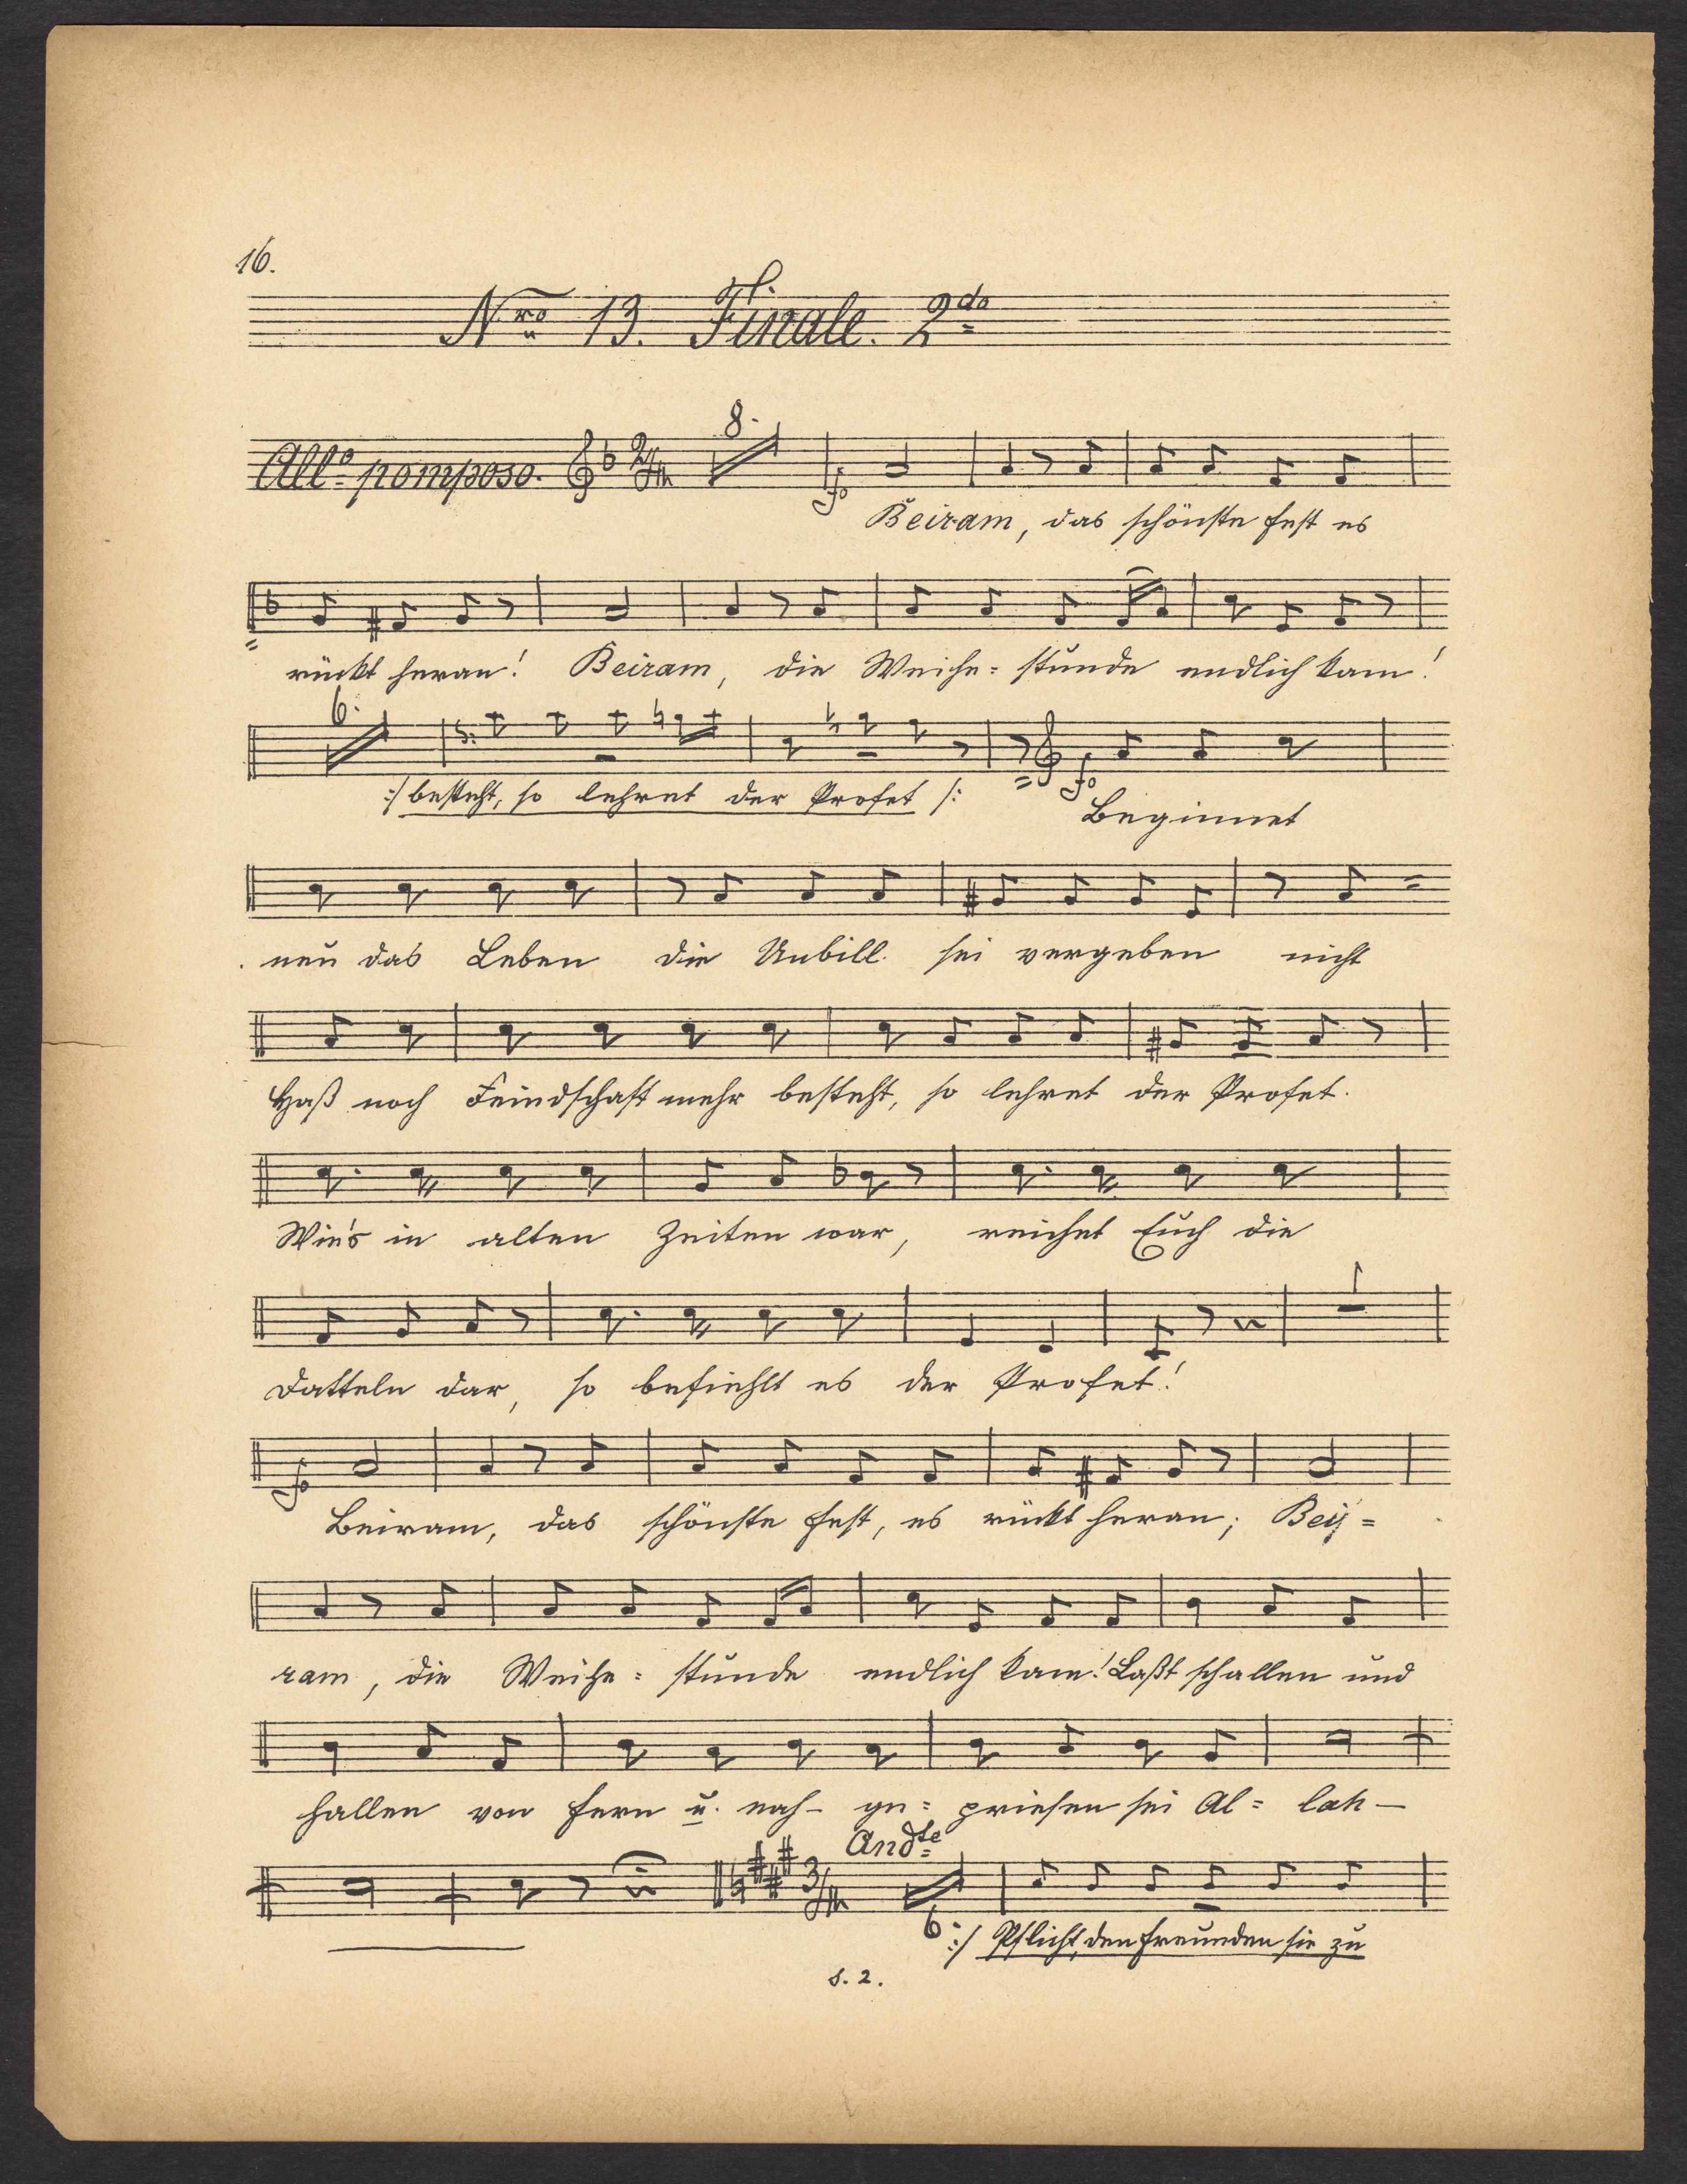 16.
Nro 13. Finale. 2do
8.
Allo pomposo. 2/4 fo
Beiram, das schönste Fest es
rückt heran! Beiram, die Weihe= stunde endlich kam!
6.
fo
:/ besteht, so lehret der Profet /: Beginnet
neu das Leben die Unbill sei vergeben nicht
Haß noch Feindschaft mehr besteht, so lehret der Profet.
Wie's in alten Zeiten war, reichet Euch die
Datteln dar, so befiehlt es der Profet!
1
fo
Beiram, das schönste Fest, es rückt heran; Bei=
ram, die Weihe= stunde endlich kam! Laßt schallen und
hallen von Fern u. nah- ge= priesen sei Al= lah —
Andte
3/4
6 :/ Pflicht, den Freunden sie zu
S. 2.